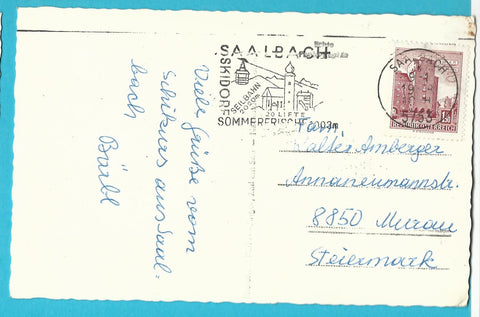 SAALBACH
SKIDORF
SEILBAHN
20 LIFTE
SOMMERFRISCHE 1003m
SAALBACH
5753
REPUBLIK ÖSTERREICH
Viele Grüße vom
Schikurs aus Saal-
bach Bärbl
Fam.
Walter Amberger
Annaneumannstr.
8850 Murau
Steiermark